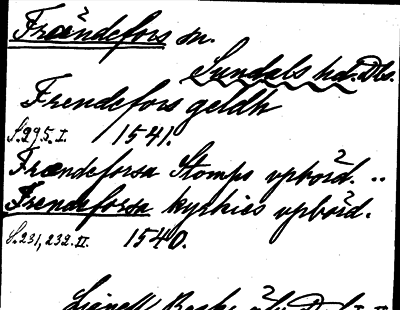 Frændefors sn.
Sundals hd. Dls.
Frendefors geldh
S. 295. I. 1541.
Frændeforsa Stomps vpbörd. ..
Frendeforsa kyrkies vpbörd.
S. 231, 232. II. 1540.
Lignell Beskr. öfv. Dal